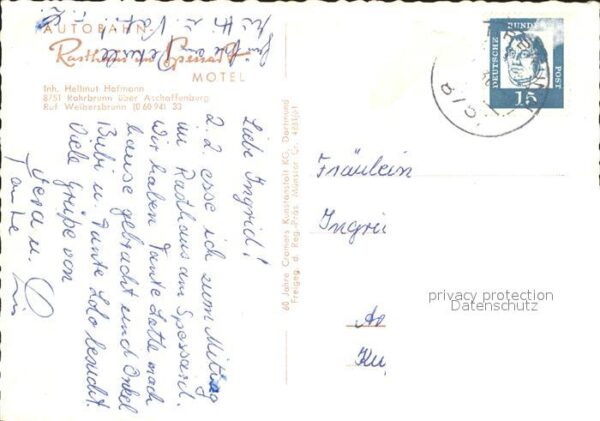 AUTOBAHN-
Rasthaus im Spessart
MOTEL
Inh. Hellmut Hofmann
8751 Rohrbrunn über Aschaffenburg
Ruf Weibersbrunn (0 60 94) 33
Liebe Ingrid!
Z. Z. esse ich zum Mittag
im Rasthaus am Spessard.
Wir haben Tante Lotte nach
hause gebracht und Onkel
Bubi u. Tante Lolo besucht.
Viele Grüße von
Vera u.
Tante
60 Jahre Cramers Kunstanstalt KG, Dortmund
Freigeg. d. Reg.-Präs. Münster Nr.
DEUTSCHE
BUNDES
POST
15
Fräulein
Ingrid
privacy protection
Datenschutz